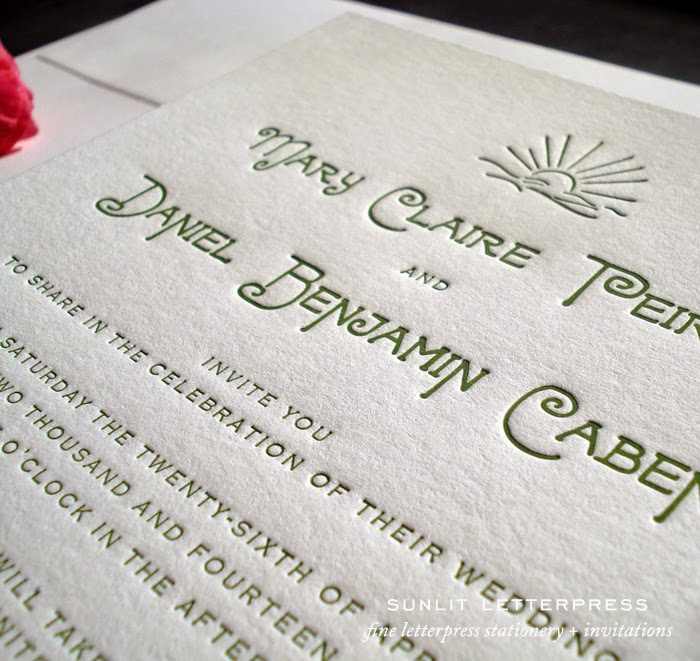 MARY CLAIRE
AND
DANIEL BENJAMIN
INVITE YOU
TO SHARE IN THE CELEBRATION OF THEIR WEDDING
SATURDAY THE TWENTY-SIXTH OF
TWO THOUSAND AND FOURTEEN
O'CLOCK IN THE
WILL TAKE
SUNLIT LETTERPRESS
fine letterpress stationery + invitations